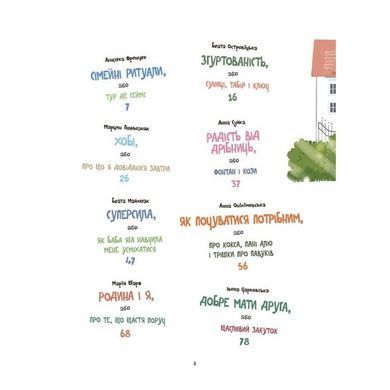 Агнєшка Францук
СІМЕЙНІ РИТУАЛИ,
або
ТУР ДЕ ГЕЙМС
7
Марцин
ХОБІ,
або
ПРО ЩО Я ДОВІДАЮСЯ ЗАВТРА
26
Беата
СУПЕРСИЛА,
або
ЯК БАБА ЯГА НАВЧИЛА
МЕНЕ УСМІХАТИСЯ
47
Марія
РОДИНА І Я,
або
ПРО ТЕ, ЩО ЩАСТЯ ПОРУЧ
68
Беата Островіцька
ЗГУРТОВАНІСТЬ,
або
СУНИЦІ, ТАБІР І КЛЮЧ
16
Анна
РАДІСТЬ ВІД
ДРІБНИЦЬ,
або
ФОНТАН І КОЗИ
37
Анна
ЯК ПОЧУВАТИСЯ ПОТРІБНИМ,
або
ПРО КОКСА, ПАНІ АЛЮ
І ТРІШКИ ПРО ПАВУКІВ
56
ДОБРЕ МАТИ ДРУГА,
або
ЩАСЛИВИЙ ЗАКУТОК
78
4